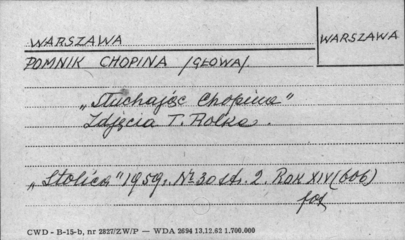 WARSZAWA
WARSZAWA
POMNIK CHOPINA /GŁOWA/.
„Słuchając Chopina"
Zdjęcia T. Rolke.
„Stolica" 1959, Nr 30 str. 2. ROK XIV (606)
fot
CWD - B-15-b, nr 2827/ZW/P — WDA 2694 13.12.62 1.700.000